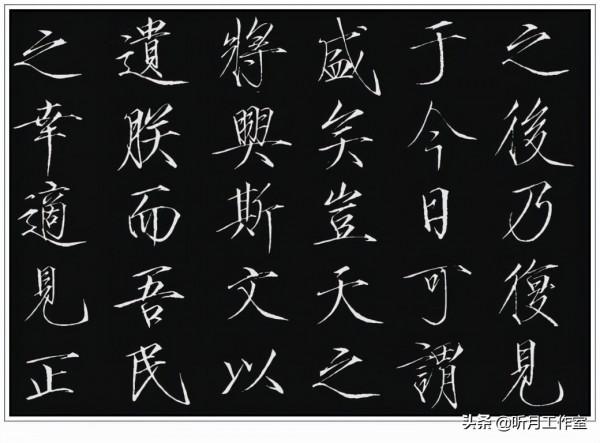 之後乃復見
于今日可謂
盛矣豈天之
將興斯文以
遺朕而吾民
之幸適見正
头条 @听月工作室